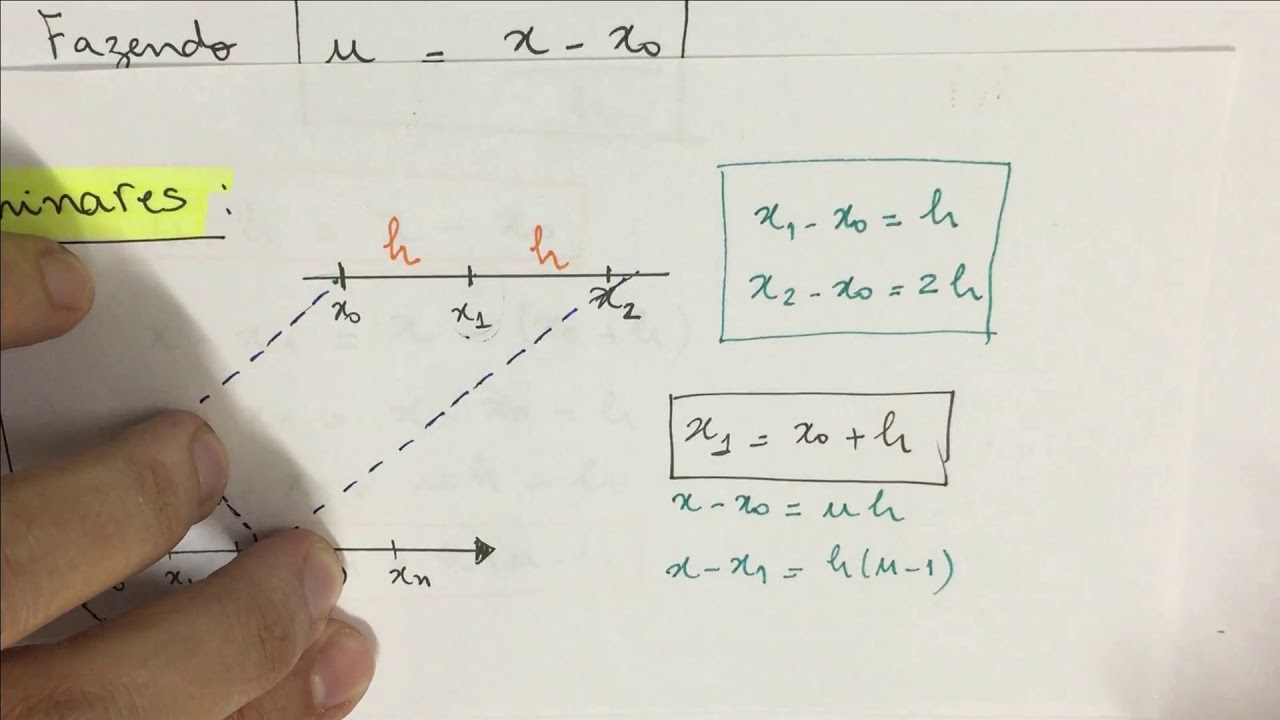 Fazendo u = x - x₀
minares :
h h
x₀ x₁ x₂
x₁ - x₀ = h
x₂ - x₀ = 2h
x₁ = x₀ + h
x - x₀ = uh
x - x₁ = h(u-1)
x₁ xₙ